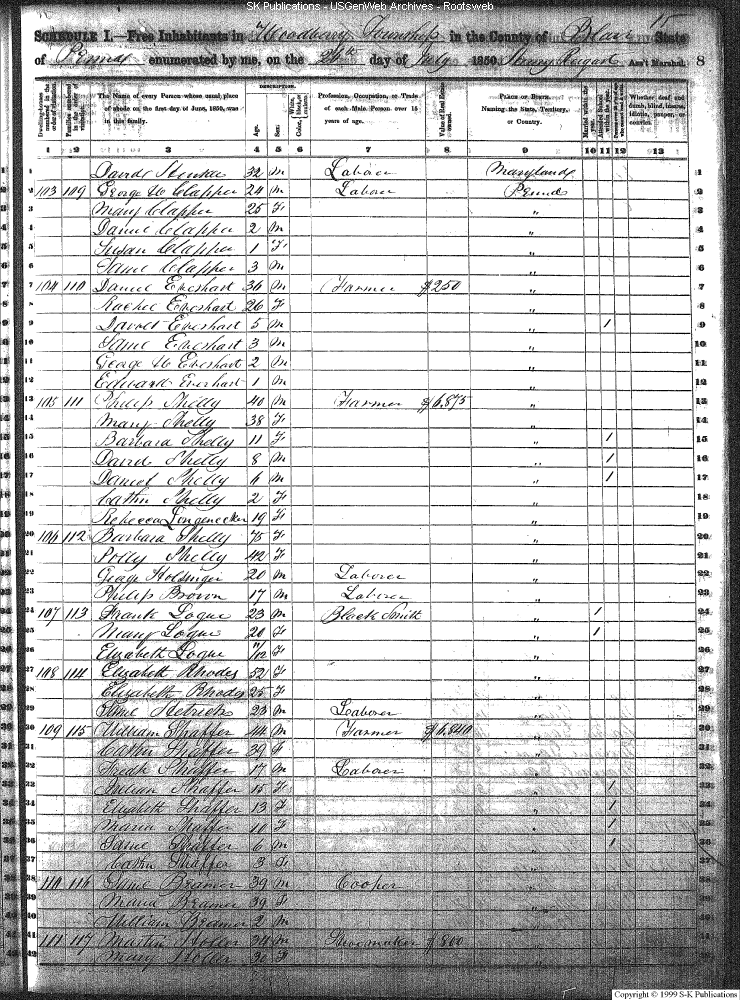 SK Publications - USGenWeb Archives - Rootsweb
15
SCHEDULE I.—Free Inhabitants in Woodberry Township in the County of Blair State
of Penna enumerated by me, on the 24th day of July 1850. Ass't Marshal. 8
Dwelling-houses numbered in the order of visitation.
Families numbered in the order of visitation.
The Name of every Person whose usual place of abode on the first day of June, 1850, was in this family.
DESCRIPTION.
Age.
Sex.
Color
Profession, Occupation, or Trade of each Male Person over 15 years of age.
Value of Real Estate owned.
PLACE OF BIRTH. Naming the State, Territory, or Country.
Married within the year.
Attended School within the year.
Whether deaf and dumb, blind, insane, idiotic, pauper, or convict.
1 2 3 4 5 6 7 8 9 10 11 12 13
1 David 32 M Laborer Maryland 1
2 103 109 George W Clapper 24 M Laborer Penna 2
3 Mary Clapper 25 F " 3
4 Daniel Clapper 2 M " 4
5 Susan Clapper 1 F " 5
6 Saml Clapper 3 M " 6
7 104 110 Daniel Evershart 36 M Farmer $250 " 7
8 Rachel Evershart 26 F " 8
9 David Evershart 5 M " 1 9
10 Saml Evershart 3 M " 10
11 George W Evershart 2 M " 11
12 Edward Evershart 1 M " 12
13 105 111 Philip Shelly 40 M Farmer $6,875 " 13
14 Mary Shelly 38 F " 14
15 Barbara Shelly 11 F " 1 15
16 David Shelly 8 M " 1 16
17 Daniel Shelly 6 M " 1 17
18 Cathn Shelly 2 F " 18
19 Rebecca Longenecker 19 F " 19
20 106 112 Barbara Shelly 75 F " 20
21 Polly Shelly 42 F " 21
22 George Holsinger 20 M Laborer " 22
23 Philip Brown 17 M Laborer " 23
24 107 113 Frank Logue 23 M Black Smith " 1 24
25 Mary Logue 20 F " 1 25
26 Elizabeth Logue 11/12 F " 26
27 108 114 Elizabeth Rhodes 52 F " 27
28 Elizabeth Rhodes 25 F " 28
29 Saml 23 M Laborer " 29
30 109 115 William Shaffer 44 M Farmer $6,840 " 30
31 Cathn Shaffer 39 F " 31
32 Fredk Shaffer 17 M Laborer " 32
33 Julian Shaffer 15 F " 1 33
34 Elizabeth Shaffer 13 F " 1 34
35 Maria Shaffer 10 F " 1 35
36 Saml Shaffer 6 M " 1 36
37 Cathn Shaffer 3 F " 37
38 110 116 Saml Beamer 39 M Cooper " 38
39 Maria Beamer 39 F " 39
40 William Beamer 2 M " 40
41 111 117 Martin Holler 34 M Shoemaker $800 " 41
42 Mary Holler 30 F " 42
Copyright © 1999 S-K Publications